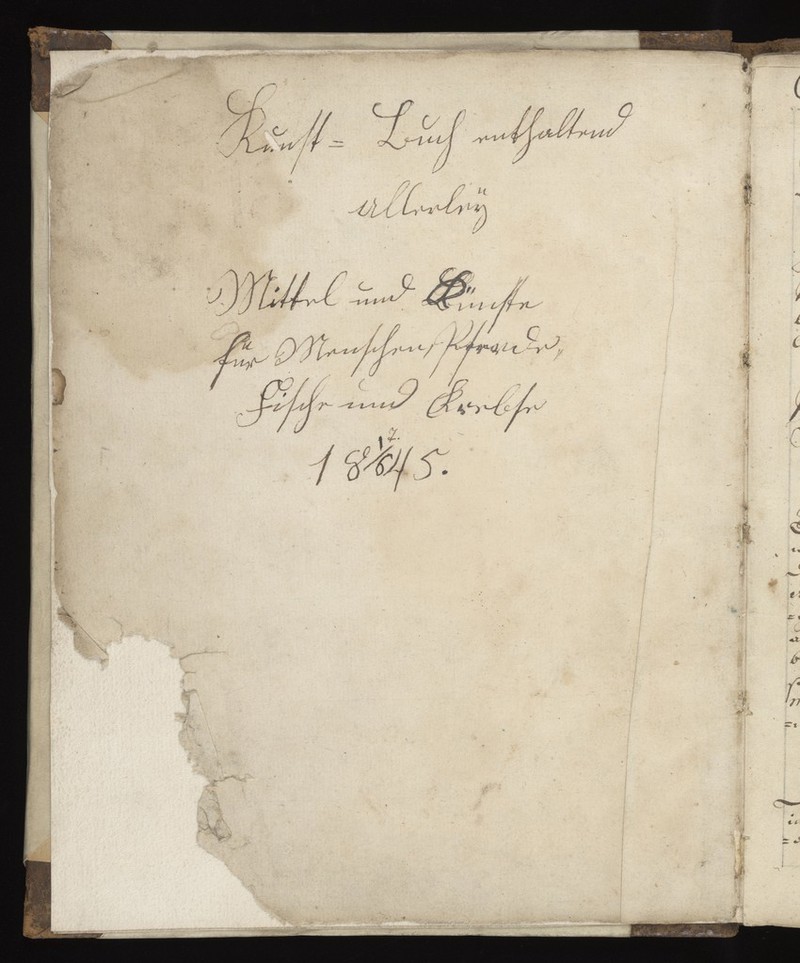 Kunst= Buch enthaltend
allerleÿ
Mittel und Künste
für Menschen, Pferde,
Fische und Krebse
18 17/6 45.